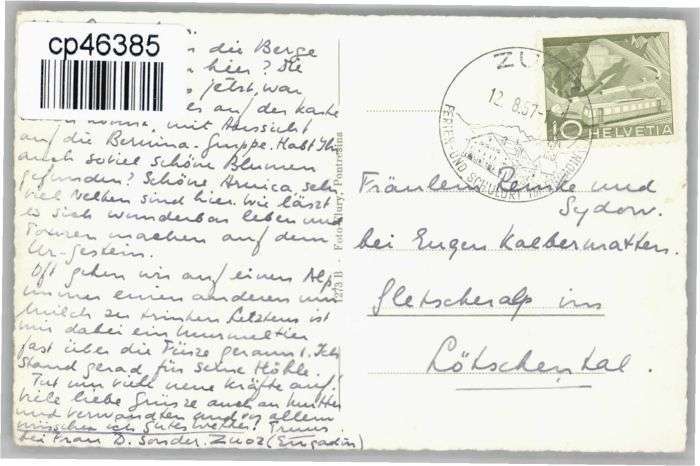 cp46385
die Berge
hier? Die
jetzt, war
es auf der Karte
kommt, mit Aussicht
auf die Bernina-gruppe. Habt Ihr
auch soviel schöne Blumen
gefunden? Schöne, Arnica, sehr
viel Nelken sind hier. Wie lässt
es sich wunderbar leben und
Touren machen auf dem
Ur-gestein.
Oft gehen wir auf einen Alp,
immer einen anderen um
Milch zu trinken Letztens ist
mir dabei ein Murmeltier
fast über die Füsse gerannt. Ich
stand gerad für seine Höhle.
Tut nur viel neue Kräfte auf!
Viele liebe Grüsze auch an Mutter
und verwandten und vor allem
wünschen ich gutes wetter!
bei Frau D. Sonder. Zuoz (Engadin)
1273 B - Foto Flury, Pontresina
ZUOZ
12.8.57
FERIEN- UND SCHULORT IM ENGADIN
10 HELVETIA
Fräulein Remke und
Sydow.
bei Eugen Kalbermatten.
Gletscheralp im
Lötschental.